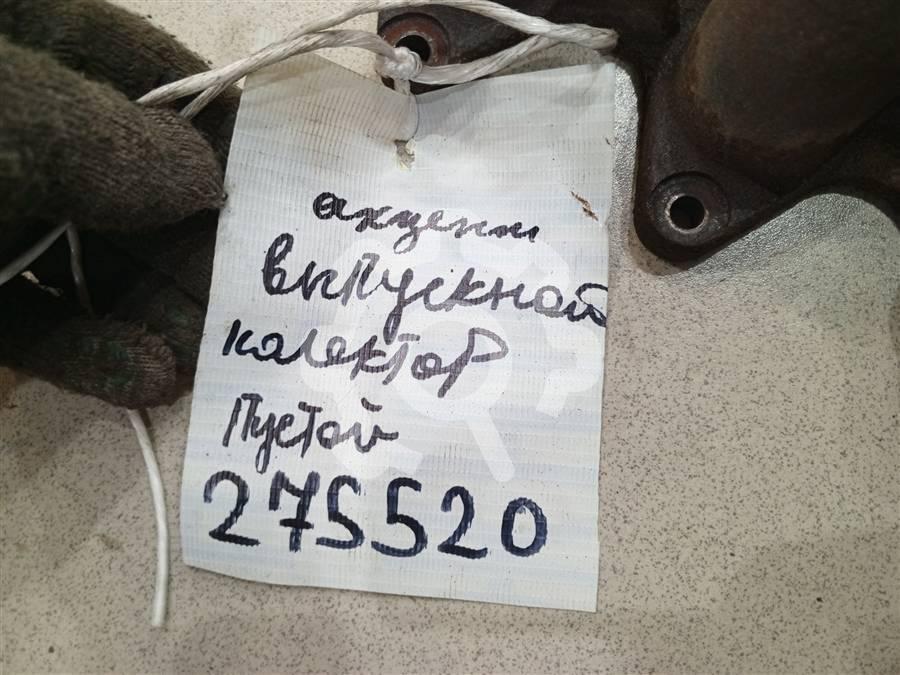 акцент
выпускной
колектор
Пустой
275520